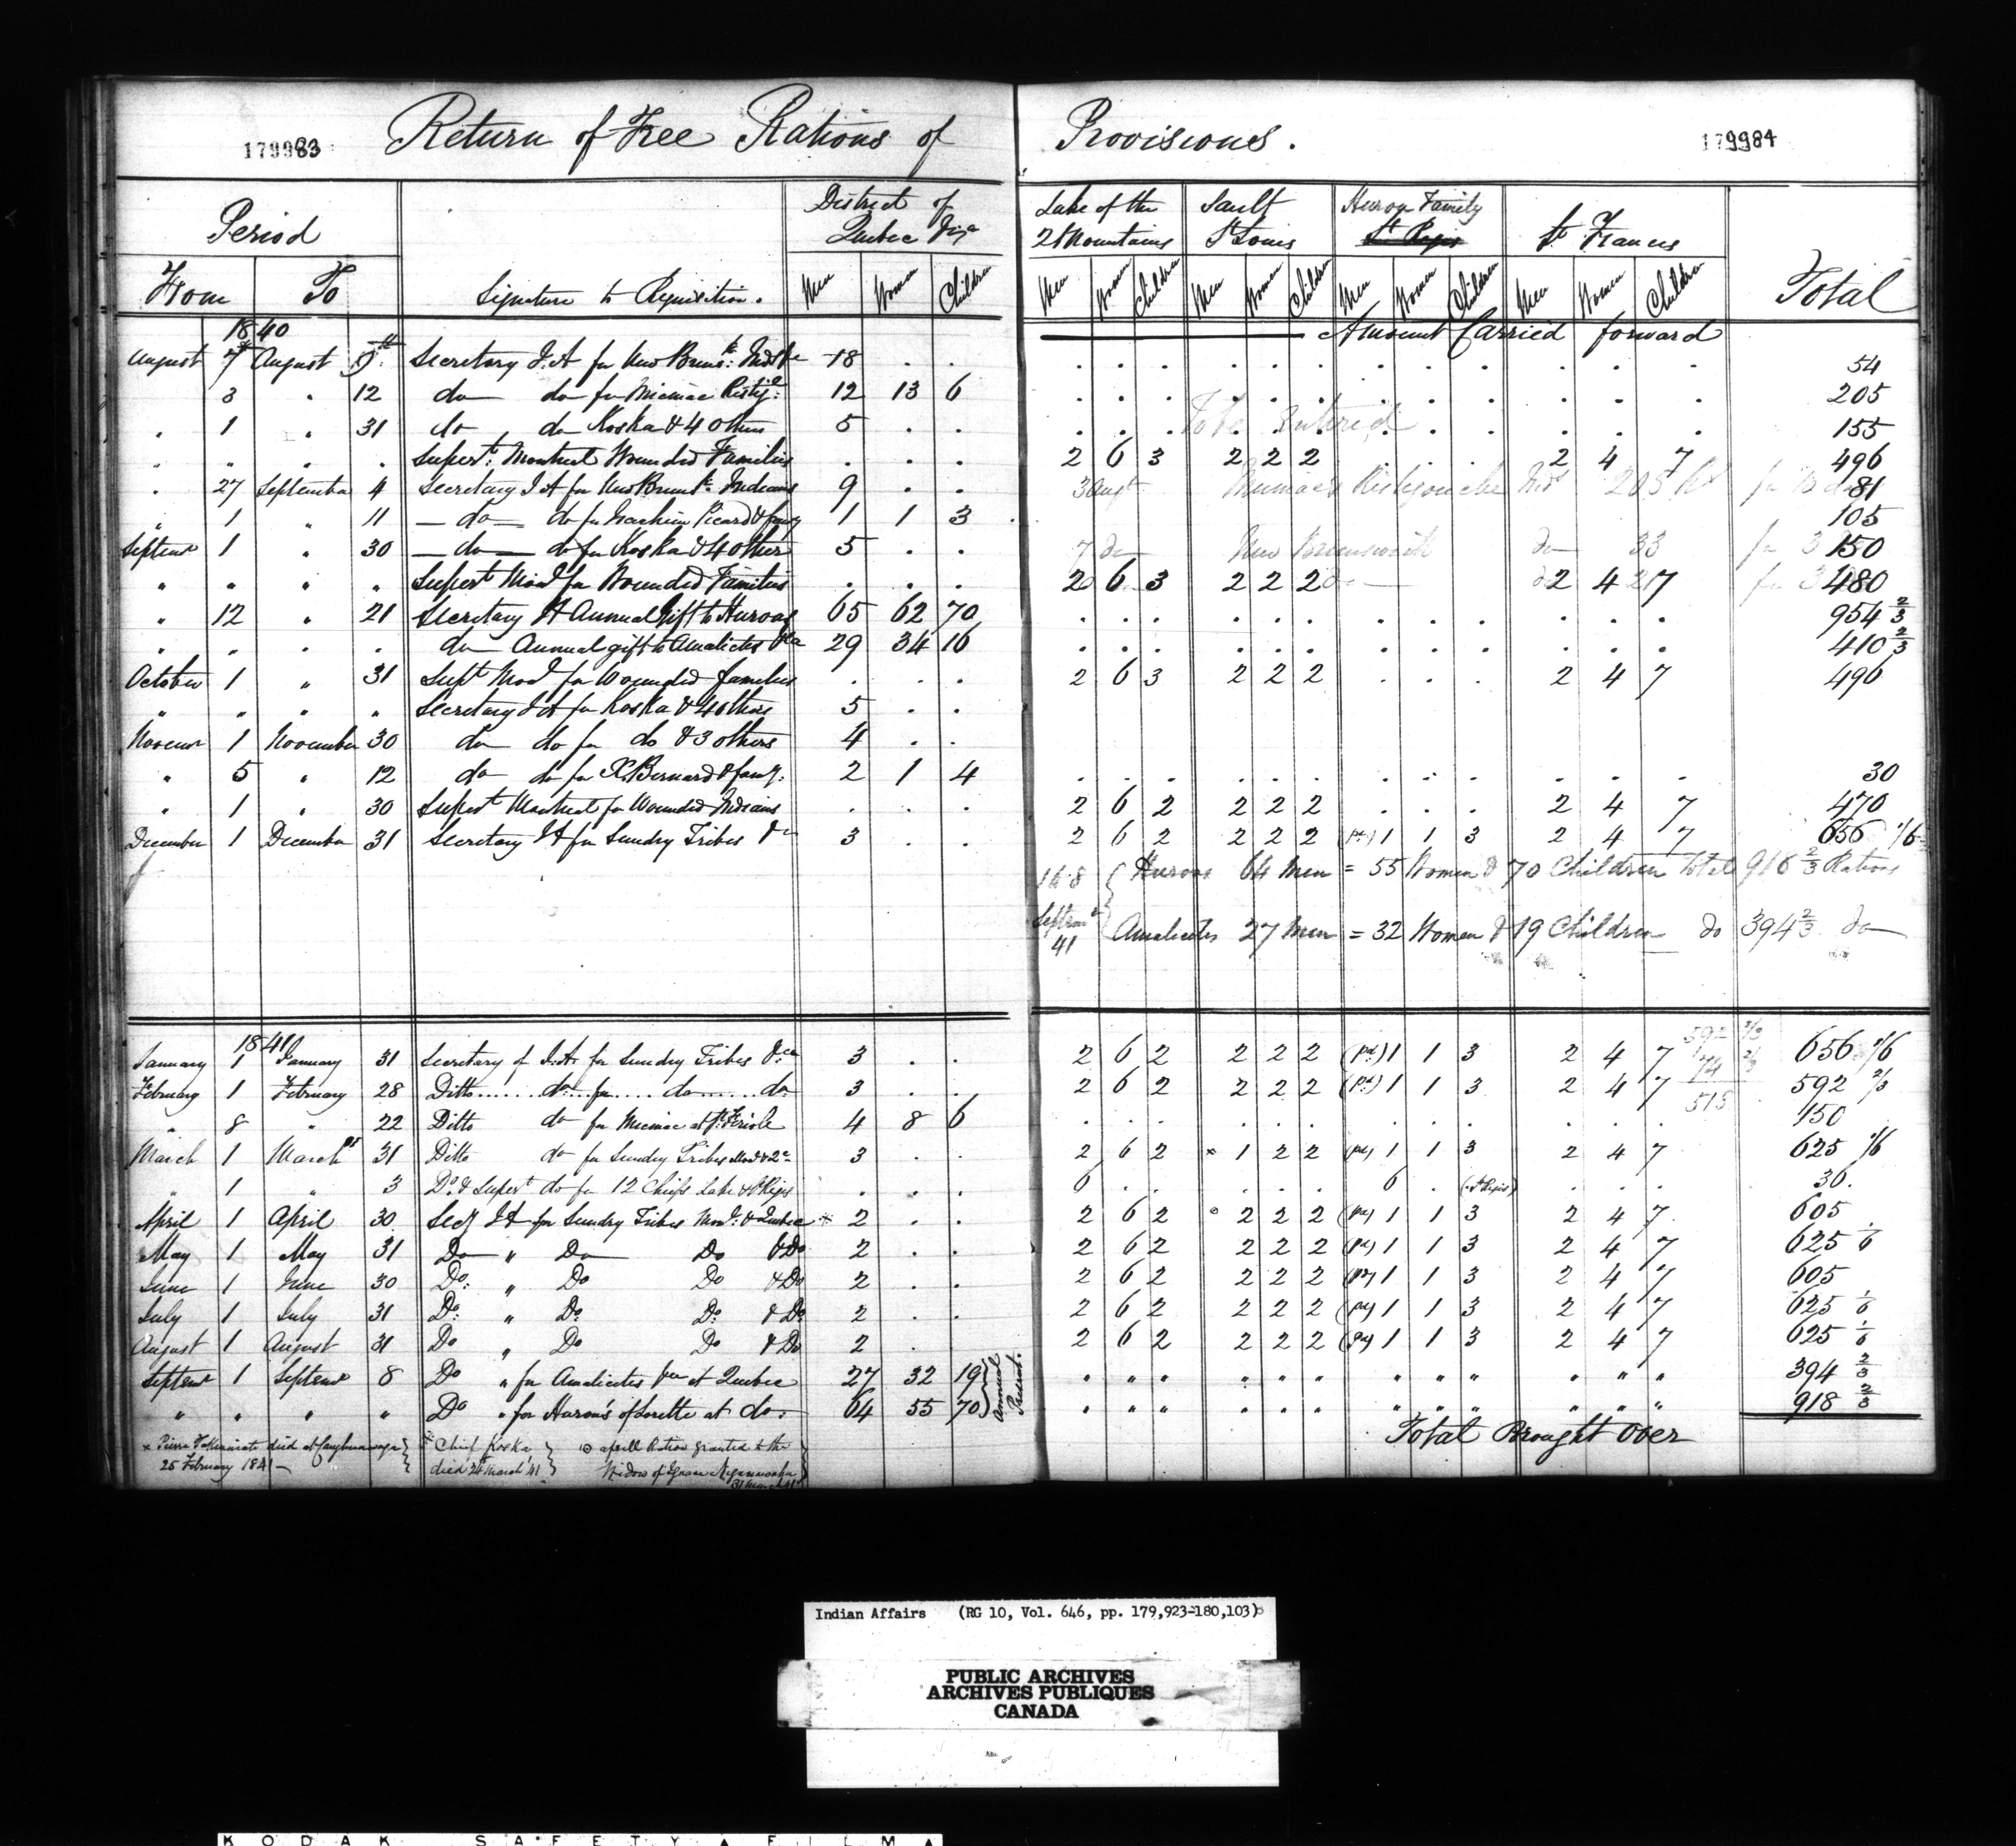 179983 Return of Free Rations of Provisions. 179984
Period
District of Quebec &ca
Lake of the 2 Mountains
Sault St Louis
Huron Family St Regis
St Francis
From To Signature to Requisition. Men Women Children Men Women Children Men Women Children Men Women Children Men Women Children Total
1840 Amount Carried forward
August 7th August 9th Secretary I.A for New Bruns: Inds &c 18 . . . . . . . . . . . . . . 54
3 " 12 do do for Micmac Ristig: 12 13 6 . . . . . . . . . . . . 205
To be entered
" 1 " 31 do do Koska & 4 others 5 . . . . . . . . . . . . . . 155
" " " " Supert: Montreal Wounded Families . . . 2 6 3 2 2 2 . . . 2 4 7 496
" 27 September 4 Secretary I A for New Brunk: Indians 9 . . 81
3 Augt Micmacs Ristigouche Inds 205 Rs for 10 da
" 1 " 11 — do — do for Zacharie Picard & famy 1 1 3 105
Septemr 1 " 30 — do — do for Koska & 4 others 5 . . 150
7 do New Brunswick do 33 for 3
" " " " Supert Monl for Wounded Families . . . 2 6 3 2 2 2 2 4 7 480
" 12 " 21 Secretary IA Annual Gift to Hurons 65 62 70 . . . . . . . . . . . . 954 2/3
" " " " do Annual gift to Amalicites &ca 29 34 16 . . . . . . . . . . . . 410 2/3
October 1 " 31 Supt Monl for Wounded families . . . 2 6 3 2 2 2 . . . 2 4 7 496
" " " " Secretary I A for Koska & 4 others 5 . .
Novemr 1 November 30 do do for do & 3 others 4 . .
" 5 " 12 do do for X. Bernard & famy. 2 1 4 . . . . . . . . . . . . 30
" 1 " 30 Supert Montreal for Wounded Indians . . . 2 6 2 2 2 2 . . . 2 4 7 470
December 1 December 31 Secretary IA for Sundry Tribes &c 3 . . 2 6 2 2 2 2 1 1 3 2 4 7 656 1/6
Hurons 64 Men = 55 Women & 70 Children Total 918 2/3 Rations
1 to 8 Septemr 41
Amalicites 27 Men = 32 Women & 19 Children do 394 2/3 do
1841
January 1 January 31 Secretary of I.A. for Sundry Tribes &ca 3 . . 2 6 2 2 2 2 1 1 3 2 4 7 656 1/6
592 2/3
74 2/3
518
February 1 February 28 Ditto....... do. for ..... do ....... do 3 . . 2 6 2 2 2 2 1 1 3 2 4 7 592 2/3
" 8 " 22 Ditto do for Micmac at St Feriole 4 8 6 . . . . . . . . . . . . 150
March 1 March 31 Ditto do for Sundry Tribes 3 . . 2 6 2 × 1 2 2 1 1 3 2 4 7 625 1/6
" 1 " 3 Do & Supert do for 12 Chiefs Lake & St Regis . . . 6 . . . . . 6 . (St Regis) . . . 36.
April 1 April 30 Secy I A for Sundry Tribes Monl: & Quebec * 2 . . 2 6 2 ° 2 2 2 1 1 3 2 4 7 605
May 1 May 31 Do " Do Do & Do 2 . . 2 6 2 2 2 2 1 1 3 2 4 7 625 1/6
June 1 June 30 Do: " Do Do & Do 2 . . 2 6 2 2 2 2 1 1 3 2 4 7 605
July 1 July 31 Do: " Do: Do: & Do: 2 . . 2 6 2 2 2 2 1 1 3 2 4 7 625 1/6
August 1 August 31 Do " Do Do & Do 2 . 2 6 2 2 2 2 1 1 3 2 4 7 625 1/6
Septemr 1 Septemr 8 Do " for Amalicites at Quebec 27 32 19 " " " " " " " " " " " " 394 2/3
Annual Present.
" " " " Do " for Huron's of Lorette at do: 64 55 70 " " " " " " " " " " " " 918 2/3
Total Brought Over
× Pierre died at Caughnawaga 25 February 1841 —
* Chief Koska died 24 March '41
⊙ April Ration granted to the Widow of Ignace 31 March 41
Indian Affairs (RG 10, Vol. 646, pp. 179,923-180,103)
PUBLIC ARCHIVES
ARCHIVES PUBLIQUES
CANADA
KODAK SAFETY FILM